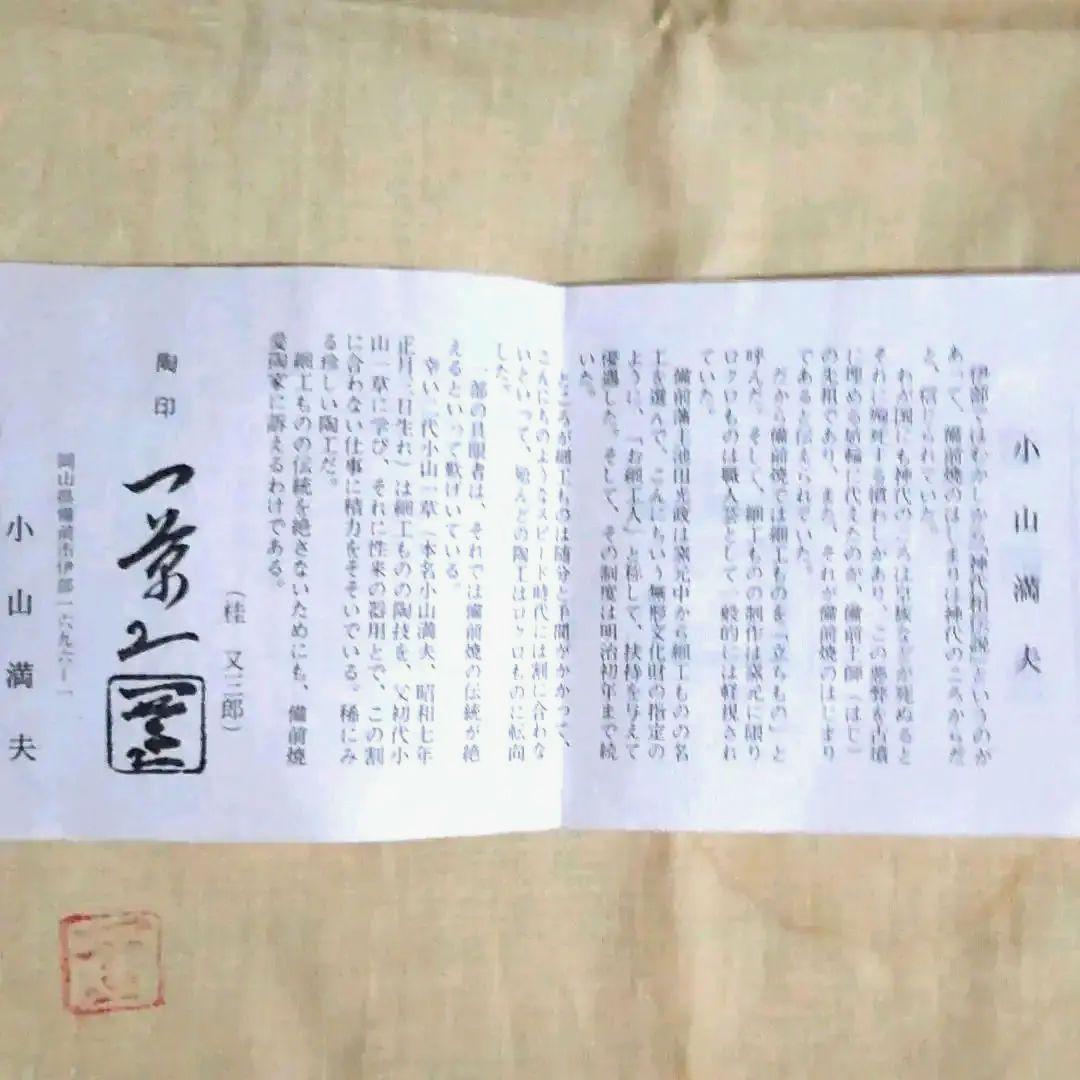 小山満夫
伊部ではむかしから「神代相伝説」というのが
あって、備前焼のはじまりは神代のころからだ
と、信じられていた。
わが国にも神代のころは皇族などが死ぬると
それに殉死する慣わしがあり、この悪弊を古墳
に埋める埴輪に代えたのが、備前土師(はじ)
の先祖であり、また、それが備前焼のはじまり
であると伝えられていた。
だから備前焼では細工ものを「立ちもの」と
呼んだ。そして、細工ものの制作は窯元に限り
ロクロものは職人芸として一般的には軽視され
ていた。
備前藩主池田光政は窯元中から細工ものの名
工を選んで、こんにちいう無形文化財の指定の
ように、「お細工人」と称して、扶持を与えて
優遇した。そして、その制度は明治初年まで続
いた。
ところが細工ものは随分と手間がかかって、
こんにちのようなスピード時代には割に合わな
いといって、殆んどの陶工はロクロものに転向
した。
一部の具眼者は、それでは備前焼の伝統が絶
えるといって歎げいている。
幸い、二代小山一草(本名小山満夫、昭和七年
正月三日生れ)は細工ものの陶技を、父初代小
山一草に学び、それに性来の器用とで、この割
に合わない仕事に精力をそそいでいる。稀にみ
る珍しい陶工だ。
細工ものの伝統を絶さないためにも、備前焼
愛陶家に訴えるわけである。
(桂 又三郎)
陶印
岡山県備前市伊部一六九六ー一
小山満夫